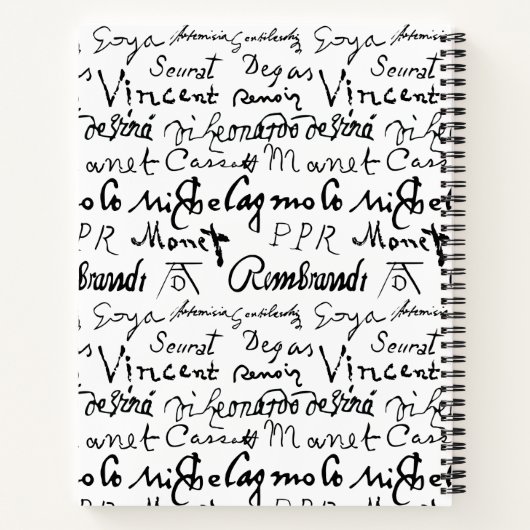 Goya Artemisia Gentileschi Goya Artemisia
Seurat Degas Seurat
s Vincent Renoir Vincent
Leonardo
anet Cassatt Manet Cass
molo Michelagmolo Michel
PPR Monet PPR Monet
Rembrandt AD Rembrandt AD
Goya Artemisia Gentileschi Goya Artemisia
Seurat Degas Seurat
s Vincent Renoir Vincent
Leonardo
anet Cassatt Manet Cass
molo Michelagmolo Michel
PPR Monet PPR Monet